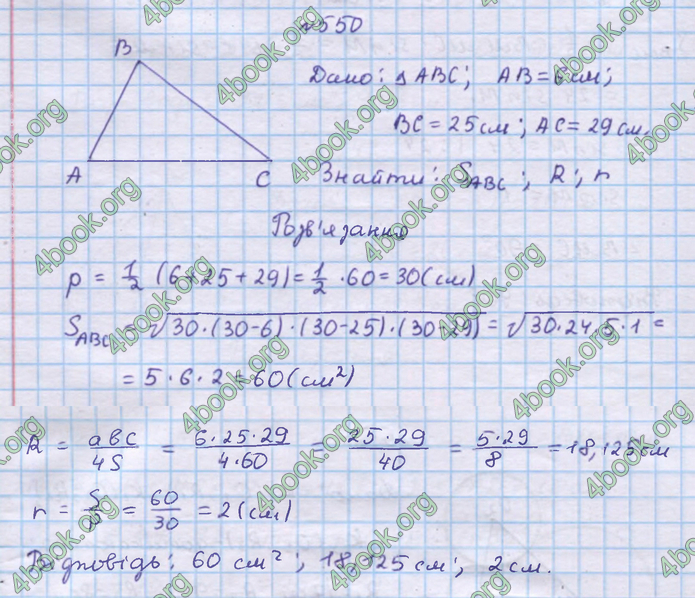 №550
B
A
C
Дано: △ABC; AB = 6 см;
BC = 25 см; AC = 29 см.
Знайти: S_ABC; R; r
Розв'язання
p = 1/2 (6 + 25 + 29) = 1/2 · 60 = 30 (см)
S_ABC = √30·(30-6)·(30-25)·(30-29) = √30·24·5·1 =
= 5 · 6 · 2 = 60 (см²)
R = abc/4S = 6·25·29/4·60 = 25·29/40 = 5·29/8 = 18,125 см
r = S/p = 60/30 = 2 (см)
Відповідь: 60 см²; 18,125 см; 2 см.
4book.org